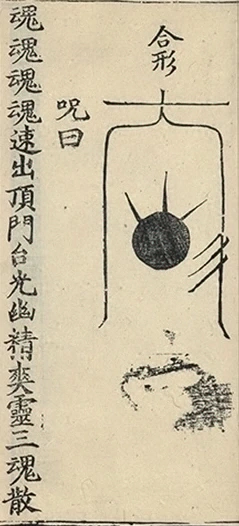 合形
呪曰
魂魂魂魂速出頂門台光幽精爽靈三魂散